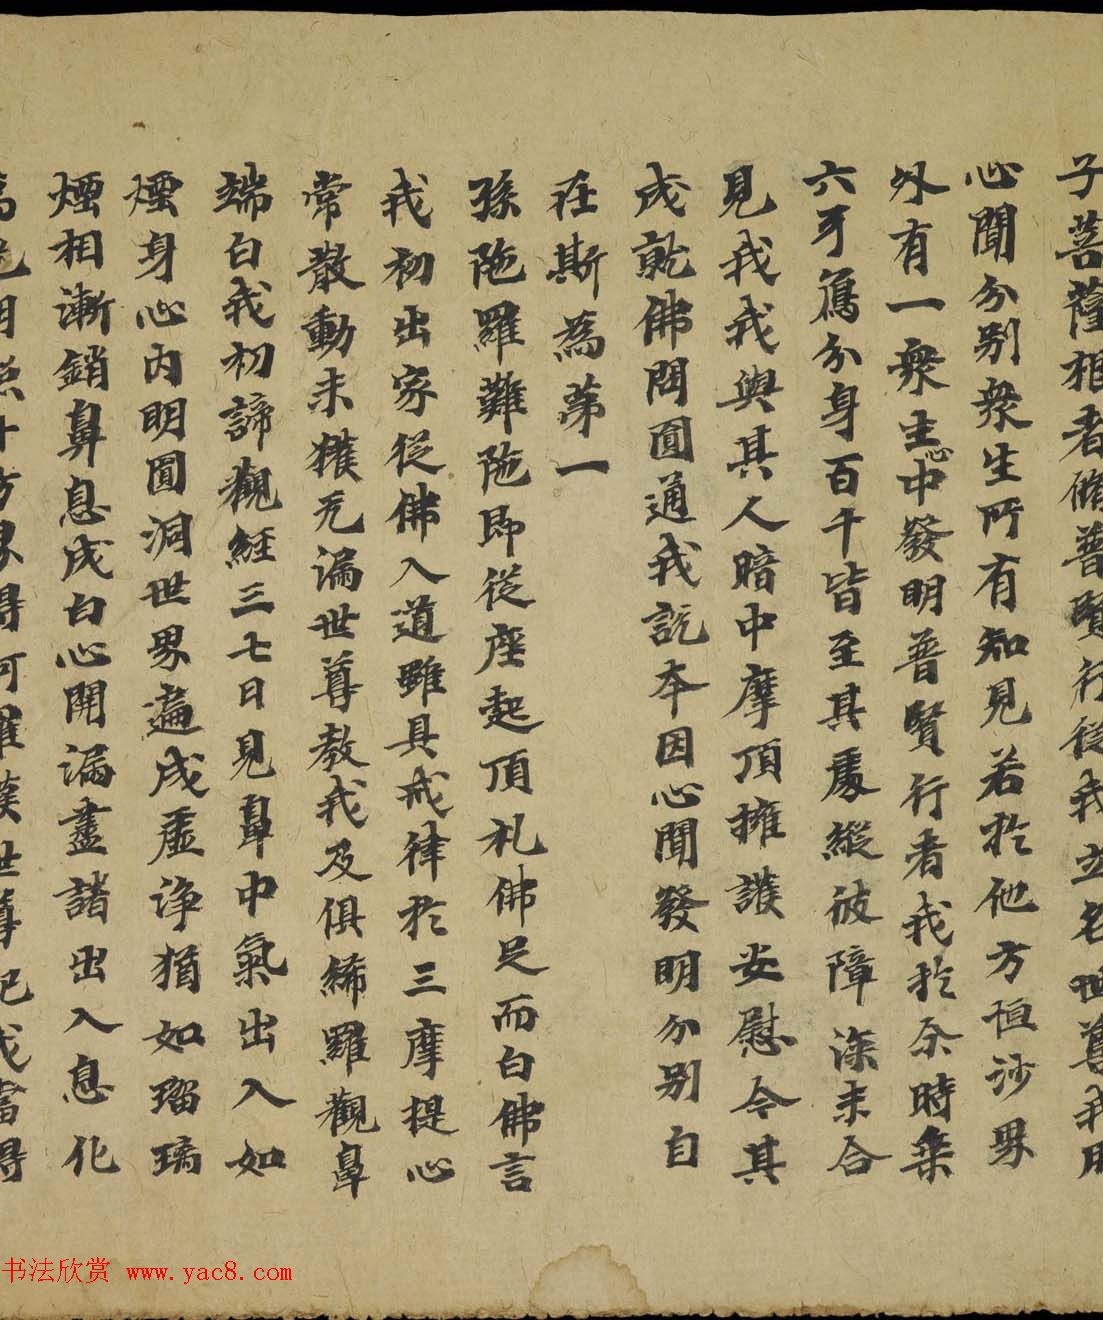 子菩薩相者脩普賢行從我立名世尊我用
心聞分別衆生所有知見若扵他方恒沙界
外有一衆生心中發明普賢行者我扵尒時乗
六牙鳥分身百千皆至其處縱彼障深未合
見我我與其人暗中摩頂擁護安慰令其
成就佛問圎通我説本因心聞發明分別自
在斯為苐一
孫陁羅難陁即從座起頂礼佛足而白佛言
我初出家從佛入道雖具戒律扵三摩提心
常散動未獲无漏世尊教我及俱絺羅觀鼻
端白我初諦觀經三七日見鼻中氣出入如
煙身心内明圎洞世界遍成虚浄猶如瑠璃
煙相漸銷鼻息成白心開漏盡諸出入息化
為光明照十方界得阿羅漢世尊記我當得
书法欣赏 www.yac8.com